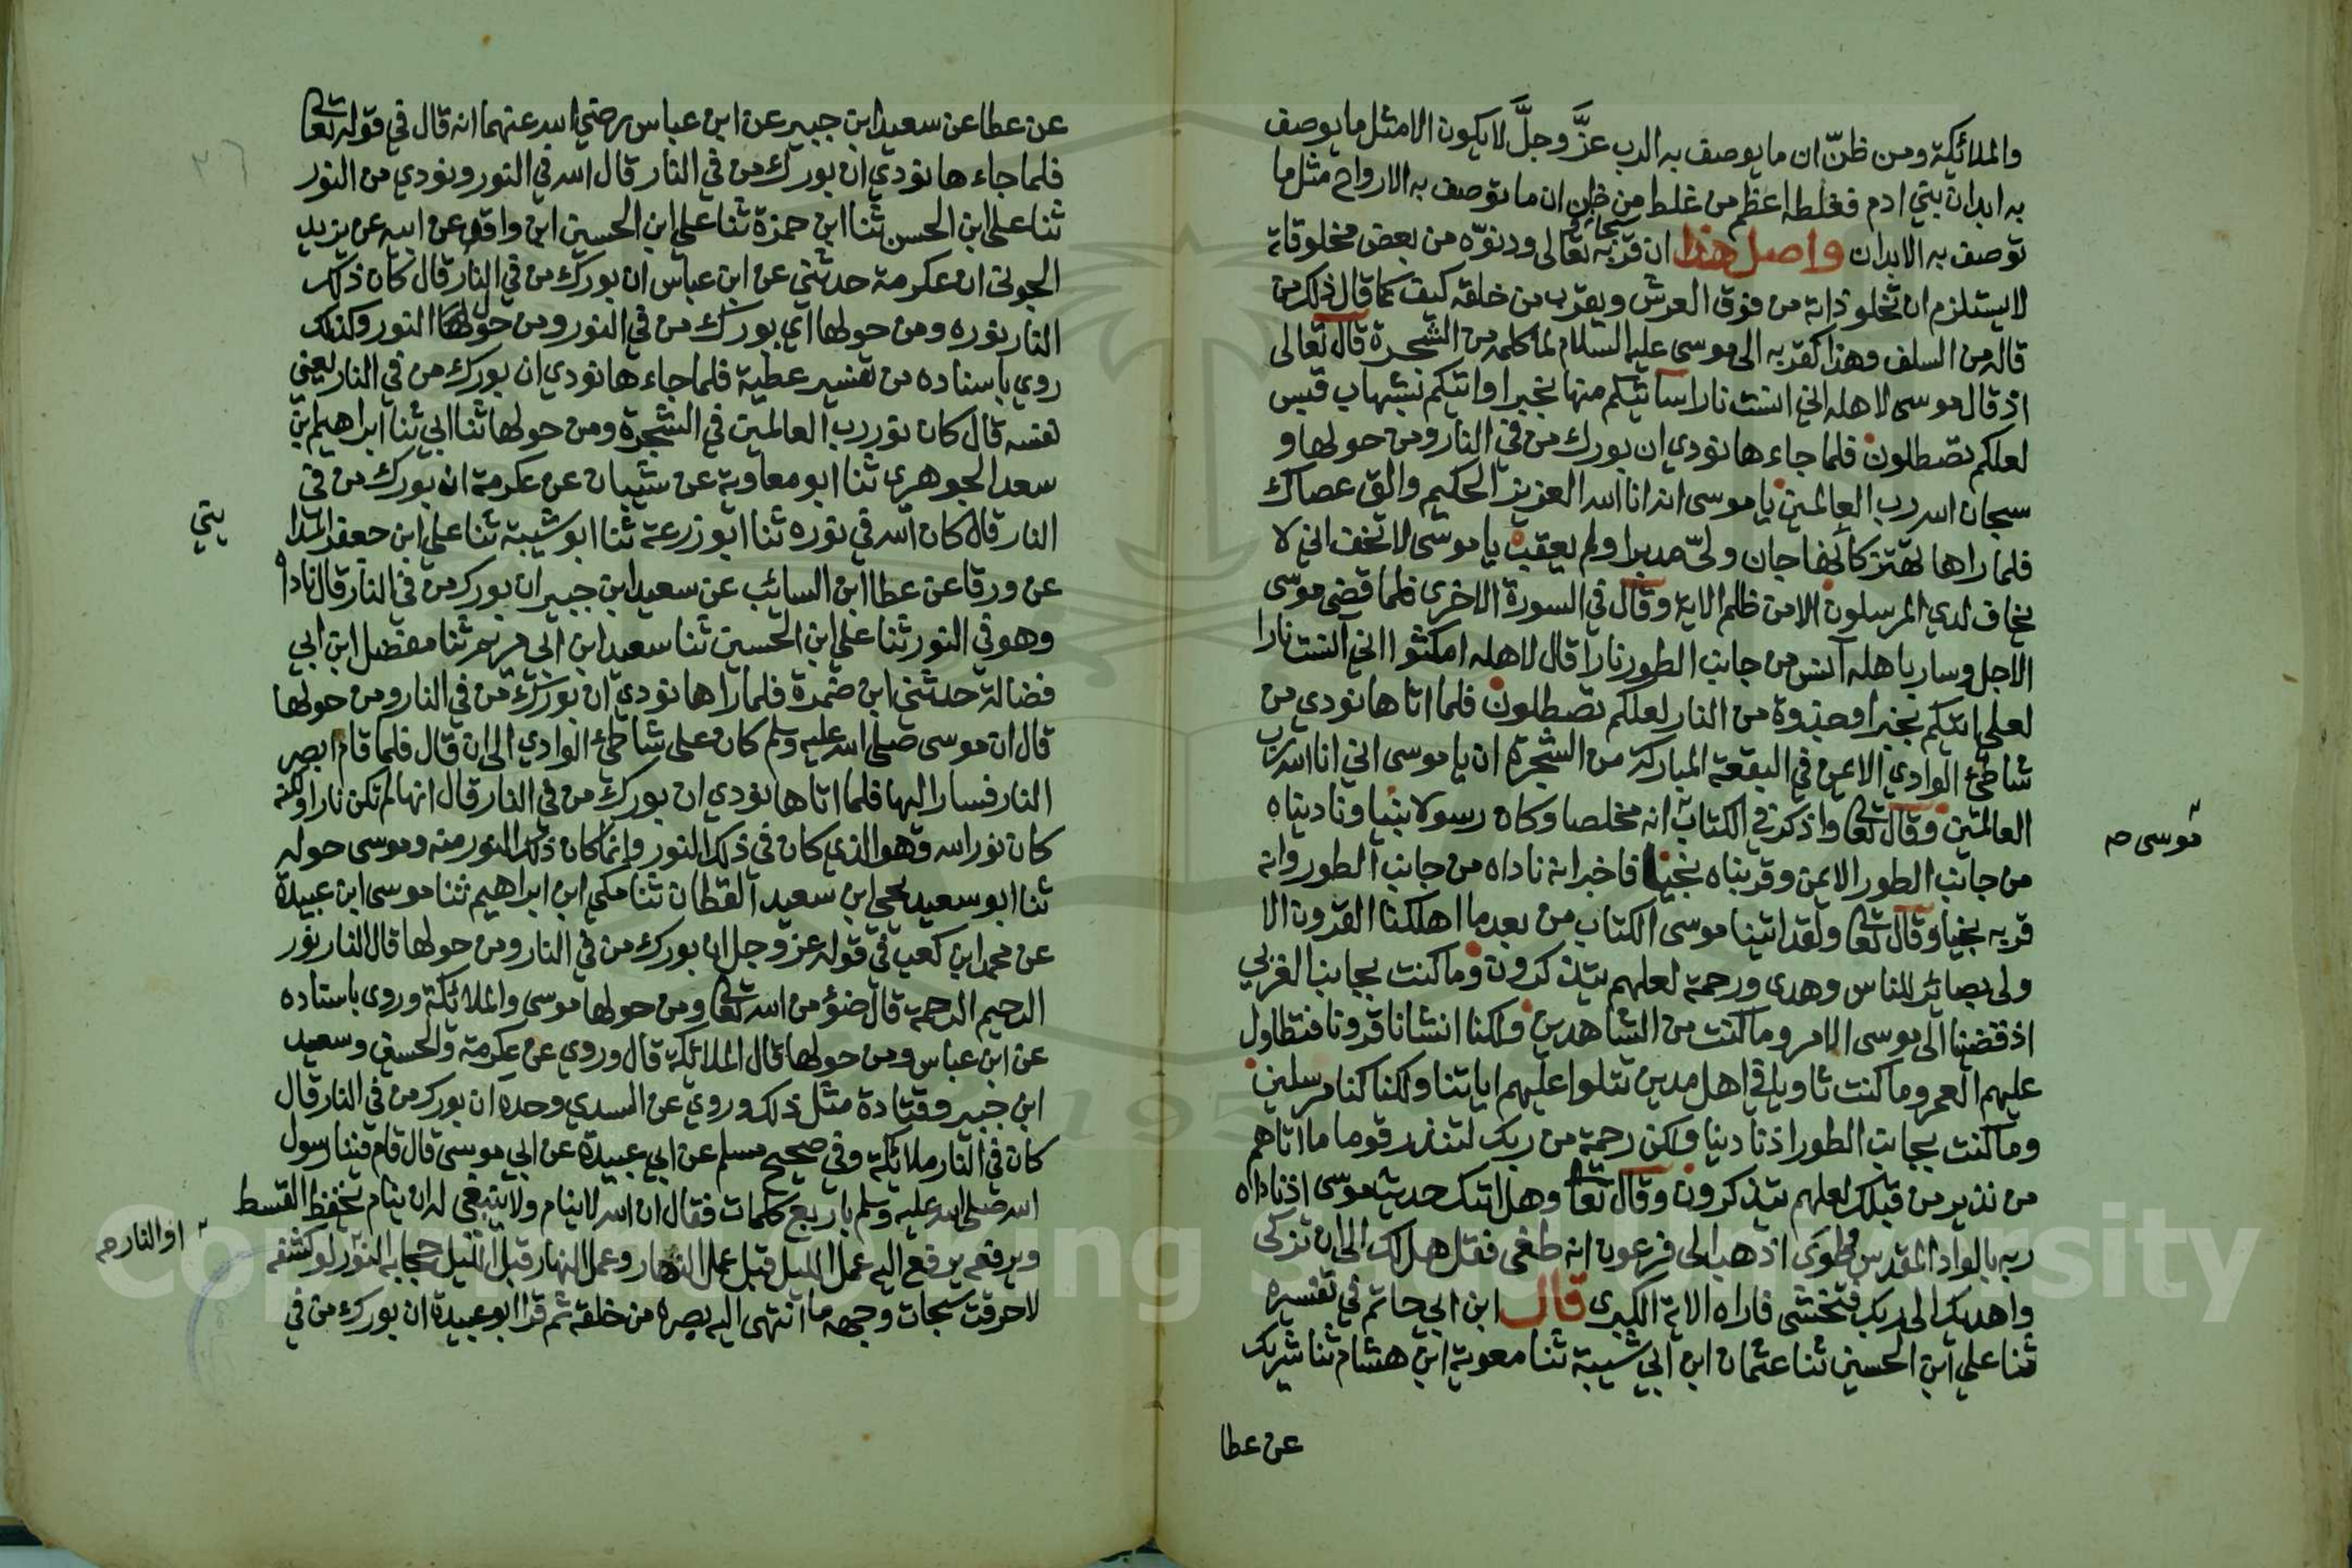 والملائكة ومن ظنّ ان ما يوصف به الرب عزَّ وجلَّ لا يكون الا مثل ما يوصف
به ابدان بني ادم فغلطه اعظم من غلط من ظن ان ما توصف به الارواح مثل ما
توصف به الابدان واصل هذا ان قربه سبحانه تعالى ودنوّه من بعض مخلوقاته
لا يستلزم ان تخلو ذاته من فوق العرش ويقرب من خلقه كيف كما قال ذلك من
قاله من السلف وهذا كقربه الى موسى عليه السلام لما كلمه من الشجرة قال تعالى
اذ قال موسى لاهله اني انست نارا ساتيكم منها بخبر او اتيكم بشهاب قبس
لعلكم تصطلون فلما جاءها نودي ان بورك من في النار ومن حولها و
سبحان الله رب العالمين يا موسى انه انا الله العزيز الحكيم والق عصاك
فلما راها تهتز كانها جان ولىّ مدبرا ولم يعقب يا موسى لا تخف اني لا
يخاف لدي المرسلون الا من ظلم الاية وقال في السورة الاخرى فلما قضى موسى
الاجل وسار باهله آنس من جانب الطور نارا قال لاهله امكثوا اني آنست نارا
لعلي اتيكم بخبر او جذوة من النار لعلكم تصطلون فلما اتاها نودي من
شاطئ الوادي الايمن في البقعة المباركة من الشجرة ان يا موسى اني انا الله رب
العالمين وقال تعا واذكر في الكتاب انه مخلصا وكان رسولا نبيا وناديناه
موسى صح
من جانب الطور الايمن وقربناه نجيا فاخبر انه ناداه من جانب الطور وانه
قربه نجيا وقال تعا ولقد اتينا موسى الكتاب من بعد ما اهلكنا القرون الا
ولى بصائر للناس وهدى ورحمة لعلهم يتذكرون وما كنت بجانب الغربي
اذ قضينا الى موسى الامر وما كنت من الشاهدين ولكنا انشانا قرونا فتطاول
عليهم العمر وما كنت ثاويا في اهل مدين تتلوا عليهم اياتنا ولكنا كنا مرسلين
وما كنت بجانب الطور اذ نادينا ولكن رحمة من ربك لتنذر قوما ما اتاهم
من نذير من قبلك لعلهم يتذكرون وقال تعا وهل اتيك حديث موسى اذ ناداه
ربه بالواد المقدس طوى اذهب الى فرعون انه طغى فقل هل لك الى ان تزكى
واهديك الى ربك فتخشى فاراه الاية الكبرى قال ابن ابي حاتم في تفسيره
ثنا علي ابن الحسين ثنا عثمان ابن ابي شيبة ثنا معوية ابن هشام ثنا شريك
عن عطا
عن عطا عن سعيد ابن جبير عن ابن عباس رضي الله عنهما انه قال في قوله تعا
فلما جاءها نودي ان بورك من في النار قال الله في النور ونودي من النور
ثنا علي ابن الحسن ثنا ابن حمزة ثنا علي ابن الحسين ابن واقد عن ابيه عن يزيد
الجوني ان عكرمة حدثني عن ابن عباس ان بورك من في النار قال كان ذلك
النار نوره ومن حولها اي بورك من في النور ومن حول النور وكذلك
روي باسناده من تفسير عطية فلما جاءها نودي ان بورك من في النار يعني
نفسه قال كان نور رب العالمين في الشجرة ومن حولها ثنا ابي ثنا ابراهيم ابن
سعد الجوهري ثنا ابو معاوية عن شيبان عن عكرمة ان بورك من في
النار قال كان الله في نوره ثنا ابو زرعة ثنا ابو شيبة ثنا علي ابن جعفر المدا
يني
عن ورقا عن عطا ابن السائب عن سعيد ابن جبير ان بورك من في النار قال ناداه
وهو في النور ثنا علي ابن الحسين ثنا سعيد ابن ابي مريم ثنا مفضل ابن ابي
فضالة حدثني ابن ضمرة فلما راها نودي ان بورك من في النار ومن حولها
قال ان موسى صلى الله عليه وسلم كان على شاطئ الوادي الى ان قال فلما قام ابصر
النار فسار اليها فلما اتاها نودي ان بورك من في النار قال انها لم تكن نارا ولكنه
كان نور الله وهو الذي كان في ذلك النور وانما كان ذلك النور منه وموسى حوله
ثنا ابو سعيد يحيى ابن سعيد القطان ثنا مكي ابن ابراهيم ثنا موسى ابن عبيدة
عن محمد ابن كعب في قوله عز وجل ان بورك من في النار ومن حولها قال النار نور
الرحيم الرحمة قال ضؤ من الله تعا ومن حولها موسى والملائكة وروى باسناده
عن ابن عباس ومن حولها قال الملائكة قال وروي عن عكرمة والحسن وسعيد
ابن جبير وقتادة مثل ذلك وروي عن السدي وحده ان بورك من في النار قال
كان في النار ملائكة وفي صحيح مسلم عن ابي عبيدة عن ابي موسى قال قام فينا رسول
الله صلى الله عليه وسلم باربع كلمات فقال ان الله لا ينام ولا ينبغي له ان ينام يخفظ القسط
ويرفعه يرفع اليه عمل الليل قبل عمل النهار وعمل النهار قبل الليل حجابه النور لو كشفه
او النار صح
لاحرقت سبحات وجهه ما انتهى اليه بصره من خلقه ثم قرا ابو عبيدة ان بورك من في
Copyright © King Saud University
1957